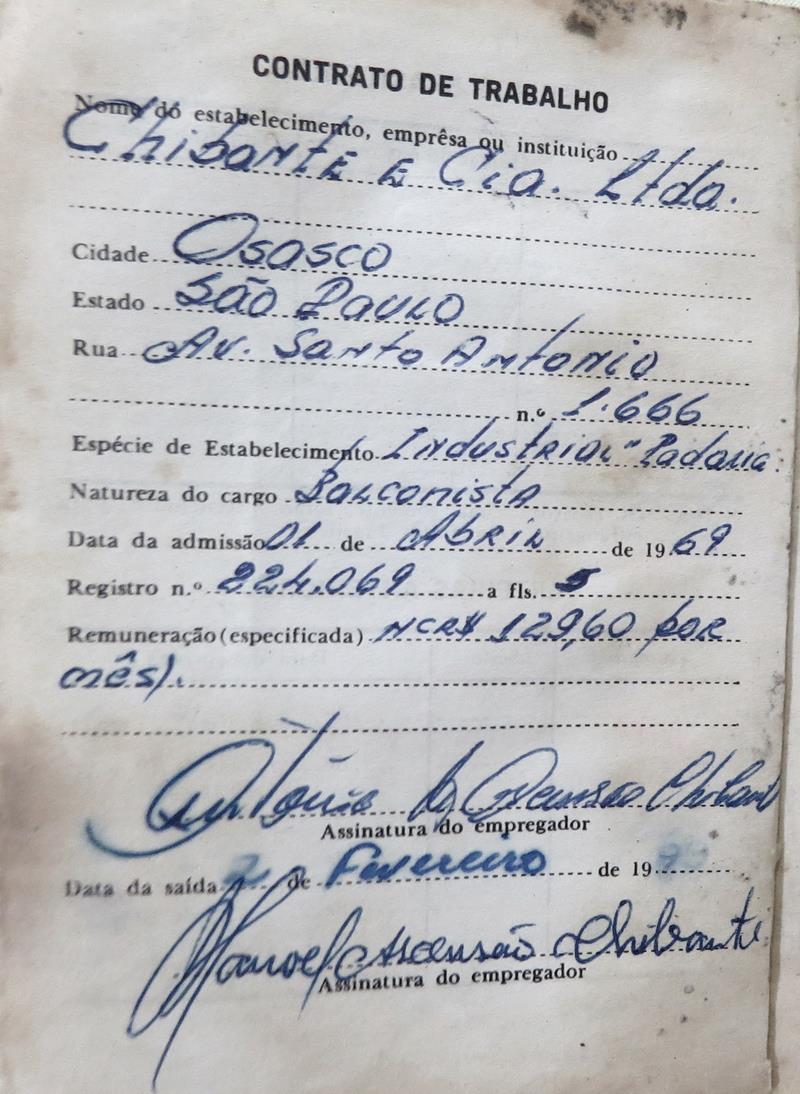 CONTRATO DE TRABALHO
Nome do estabelecimento, emprêsa ou instituição
Chibante e Cia. Ltda.
Cidade Osasco
Estado São Paulo
Rua Av. Santo Antonio
n.º 1.666
Espécie de Estabelecimento Industrial "Padaria"
Natureza do cargo Balconista
Data da admissão 01 de Abril de 1969
Registro n.º 224.069 a fls. 5
Remuneração (especificada) NCR$ 129,60 por
mês).
Antônio Ascensão Chibante
Assinatura do empregador
Data da saída 2 de Fevereiro de 19
Manoel Ascensão Chibante
Assinatura do empregador